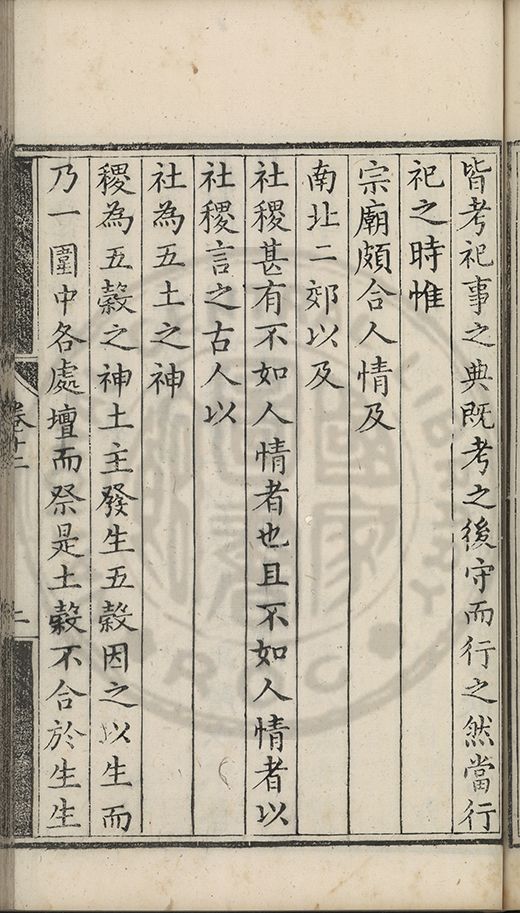 皆考祀事之典既考之後守而行之然當行
祀之時惟
宗廟頗合人情及
南北二郊以及
社稷甚有不如人情者也且不如人情者以
社稷言之古人以
社為五土之神
稷為五穀之神土主發生五穀因之以生而
乃一圍中各處壇而祭是土穀不合於生生
卷十二